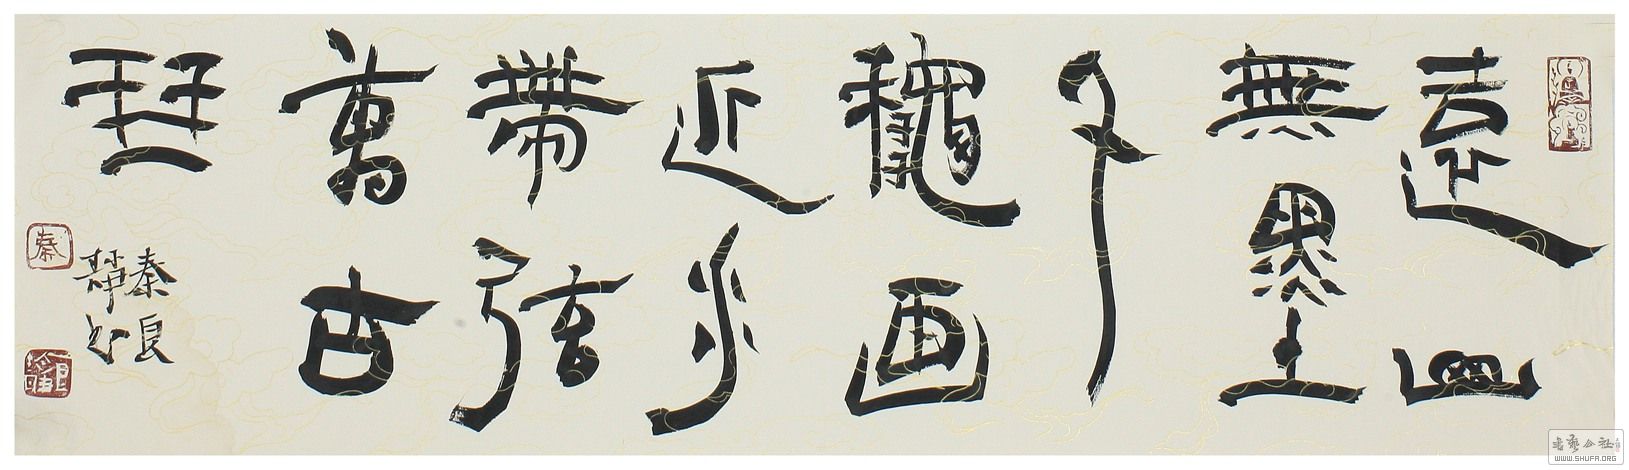 遠山
無墨
千
龝画
近水
帶弦
萬古
琴
秦良
静书
秦
书艺公社
WWW.SHUFA.ORG